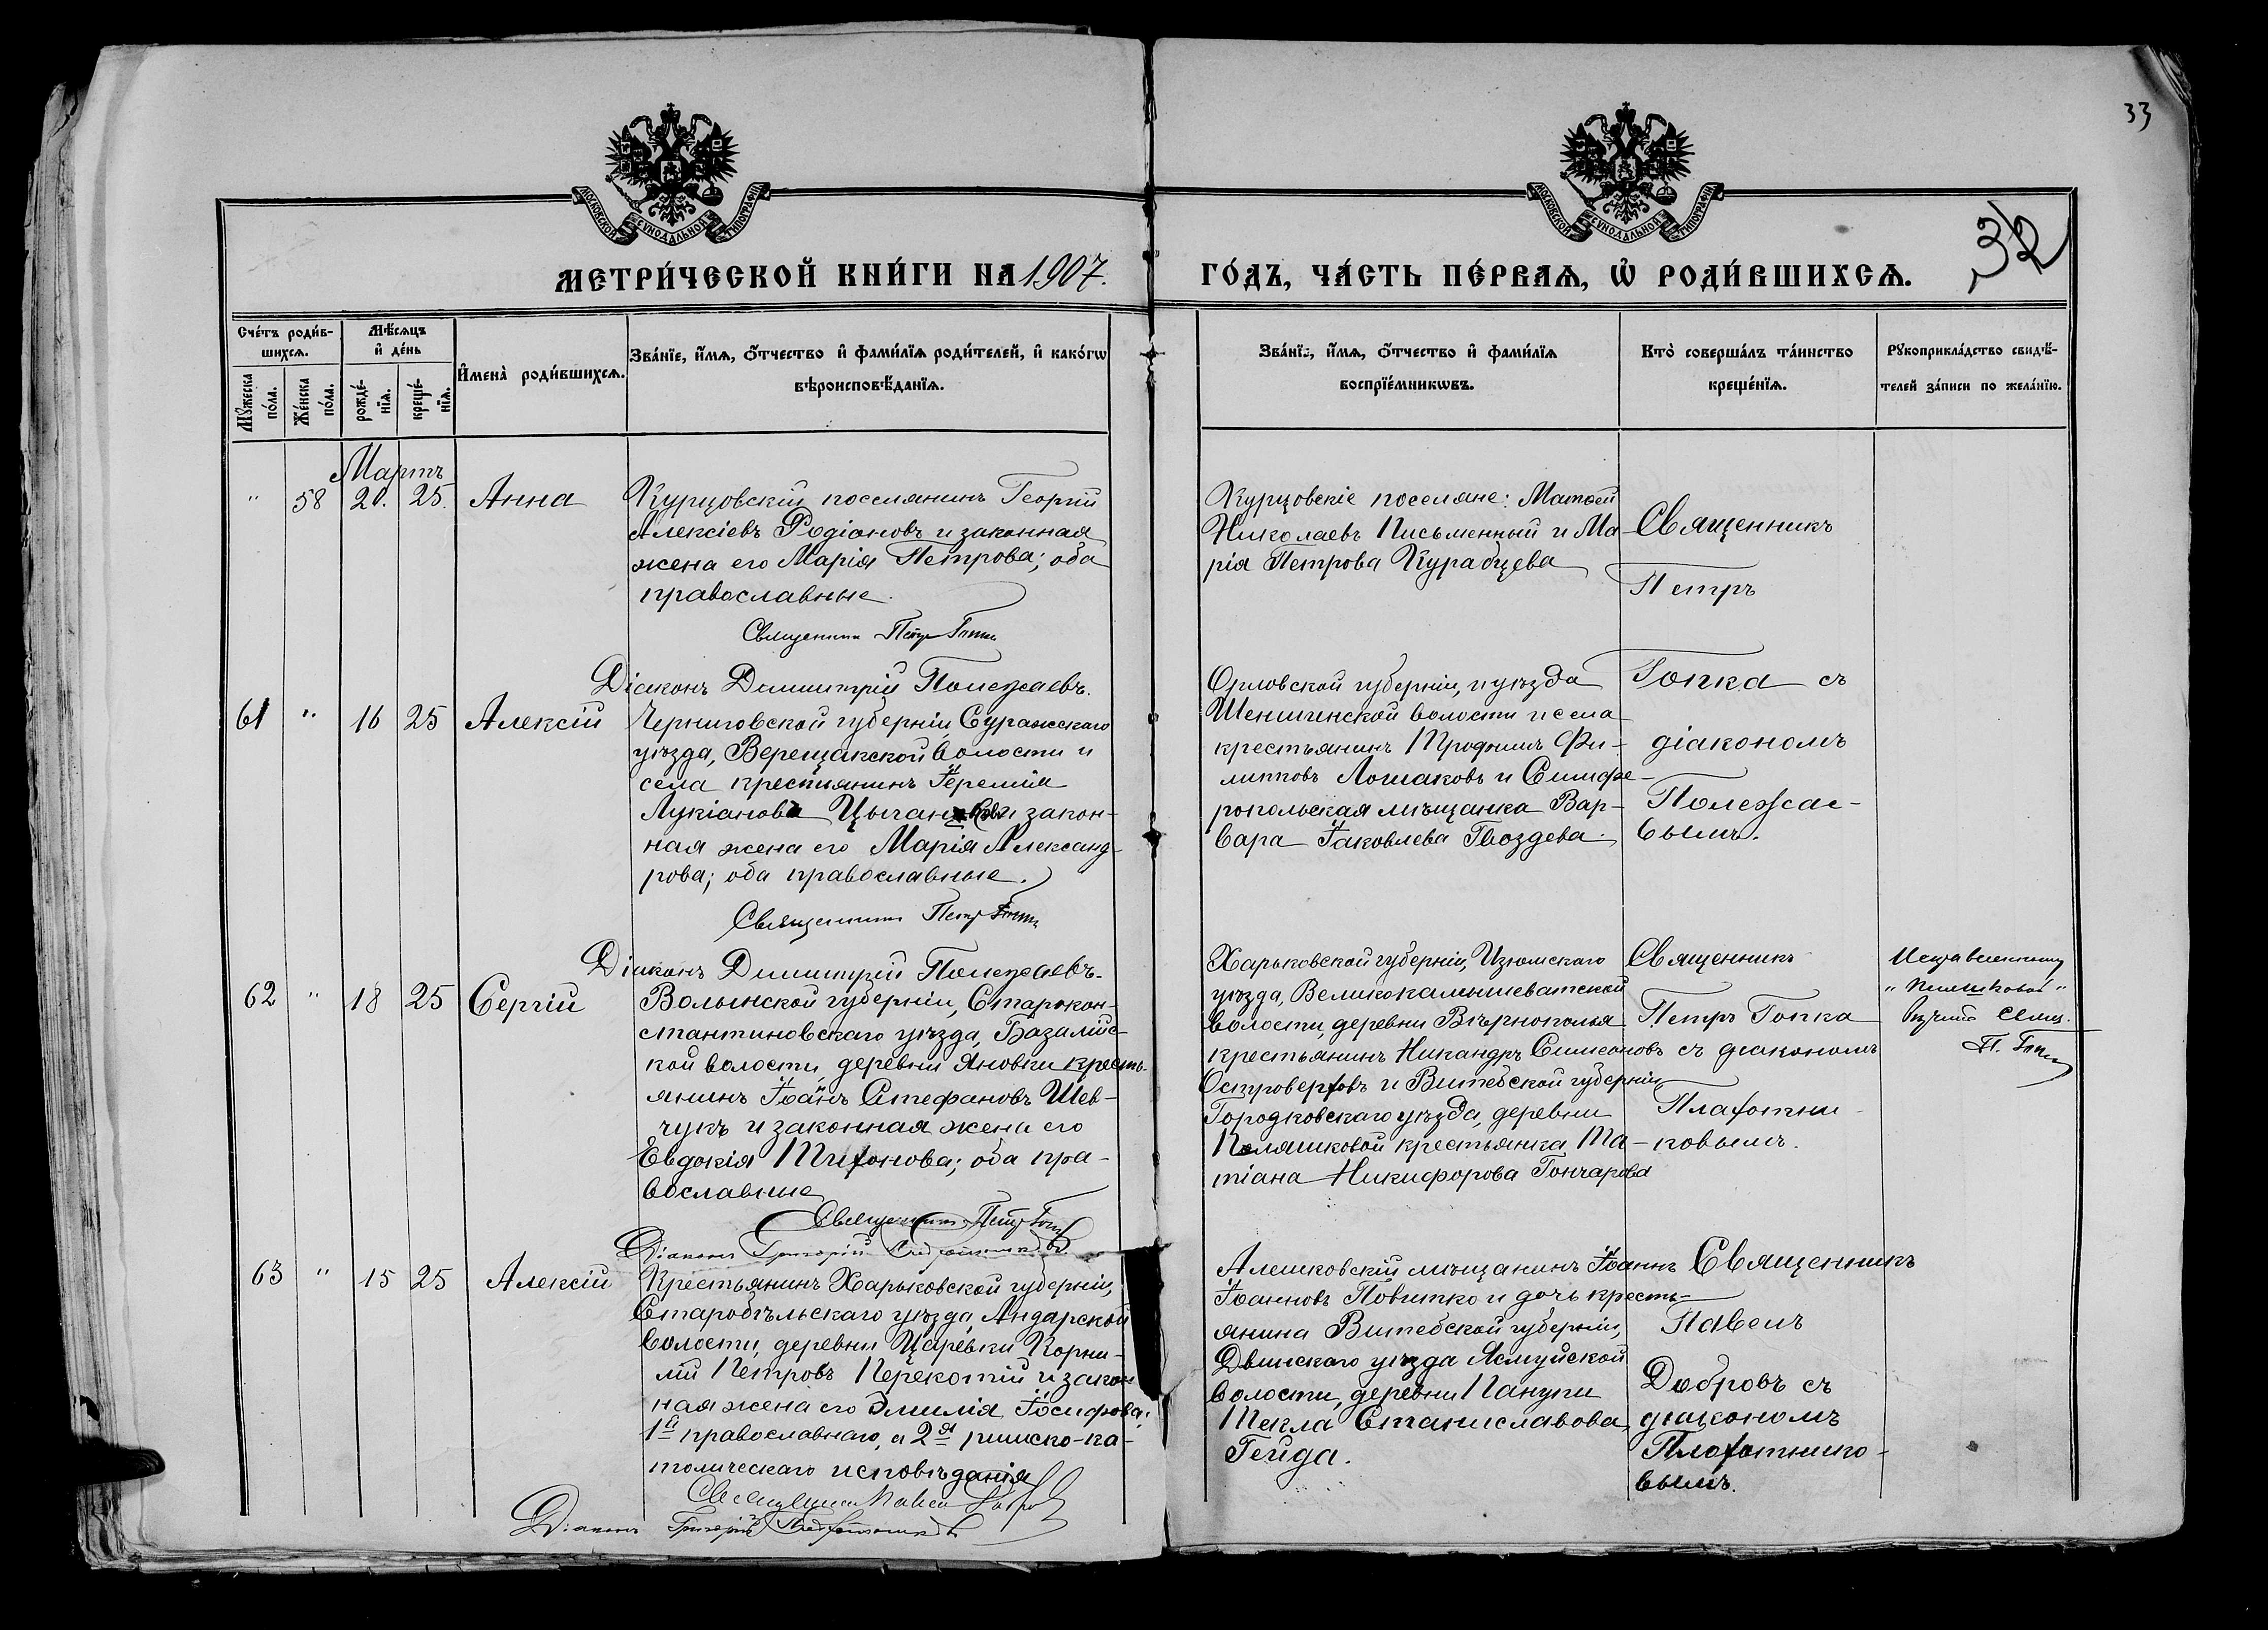 33
32
МОСКОВСКОЙ СѴНОДАЛЬНОЙ ТИПОГРАФІИ
МОСКОВСКОЙ СѴНОДАЛЬНОЙ ТИПОГРАФІИ
МЕТРИ́ЧЕСКОЙ КНИ́ГИ НА 1907.
ГО́ДЪ, ЧА́СТЬ ПЕ́РВАѦ, Ѡ҆ РОДИ́ВШИХСѦ.
Сче́тъ роди́в-
шихсѧ.
Мꙋ́жеска
по́ла.
Же́нска
по́ла.
Мѣ́сѧцъ
и҆ де́нь
рожде́-
нїѧ.
креще́-
нїѧ.
И҆мена̀ роди́вшихсѧ.
Зва́нїе, и҆́мѧ, ѻ҆́тчество и҆ фами́лїѧ роди́телей, и҆ како́гѡ
вѣроисповѣ́данїѧ.
Зва́нїе, и҆́мѧ, ѻ҆́тчество и҆ фами́лїѧ
воспрїе́мникѡвъ.
Кто̀ соверша́лъ та́инство
креще́нїѧ.
Рꙋкоприкла́дство свидѣ́-
телей за́писи по жела́нїю.
Мартъ
" 58 20. 25. Анна
Курцовскій поселянинъ Георгій
Алексіевъ Родіановъ и законная
жена его Марія Петрова; оба
православные.
Священникъ Петръ Гопка
Діаконъ Димитрій Полежаевъ.
Курцовскіе поселяне: Матѳей
Николаевъ Письменный и Ма
рія Петрова Курабцева
Священникъ
Петръ
Гопка съ
діакономъ
Полежае-
вымъ.
61 " 16 25 Алексій
Черниговской губерніи, Суражскаго
уѣзда, Верещакской волости и
села крестьянинъ Іеремія
Лукіановъ Цыган и закон-
ная жена его Марія Александ-
рова; оба православные.
Священникъ Петръ Гопка
Діаконъ Димитрій Полежаевъ.
Орловской губерніи, и уѣзда
волости и села
крестьянинъ Трофимъ Фи-
липповъ Лошаковъ и Симфе-
ропольская мѣщанка Вар-
вара Іаковлева Гвоздева.
62 " 18 25 Сергій
Волынской губерніи, Старокон-
стантиновскаго уѣзда, Базалійс-
кой волости, деревни Яновки кресть-
янинъ Іоаннъ Стефановъ Шев-
чукъ и законная жена его
Евдокія Тихонова; оба пра-
вославные
Священникъ Петръ Гопка
Діаконъ Григорій Плахотниковъ
Харьковской губерніи, Изюмскаго
уѣзда, Великокамышеватской
волости, деревни Вѣрнополья
крестьянинъ Никандръ Симеоновъ
Островерховъ и Витебской губерніи
Городковскаго уѣзда, деревни
Поляшковой крестьянка Та-
тіана Никифорова Гончарова
Священникъ
Петръ Гопка
съ діакономъ
Плахотни-
ковымъ.
Свящ.
П. Гопка
63 " 15 25 Алексій
Крестьянинъ Харьковской губерніи,
Старобѣльскаго уѣзда, Айдарской
волости, деревни Царевки Корни-
лій Петровъ Перекотій и закон
ная жена его Эмилія Іосифова;
1й православнаго, а 2я римско-ка-
толическаго исповѣданія
Священникъ Павелъ Добровъ
Діаконъ Григорій Плахотниковъ
Алешковскій мѣщанинъ Іоаннъ
Іоанновъ Повитко и дочь кресть-
янина Витебской губерніи,
Двинскаго уѣзда Ясмуйской
волости, деревни Панупи
Текла Станиславова
Гейда.
Священникъ
Павелъ
Добровъ съ
діакономъ
Плахотнико-
вымъ.